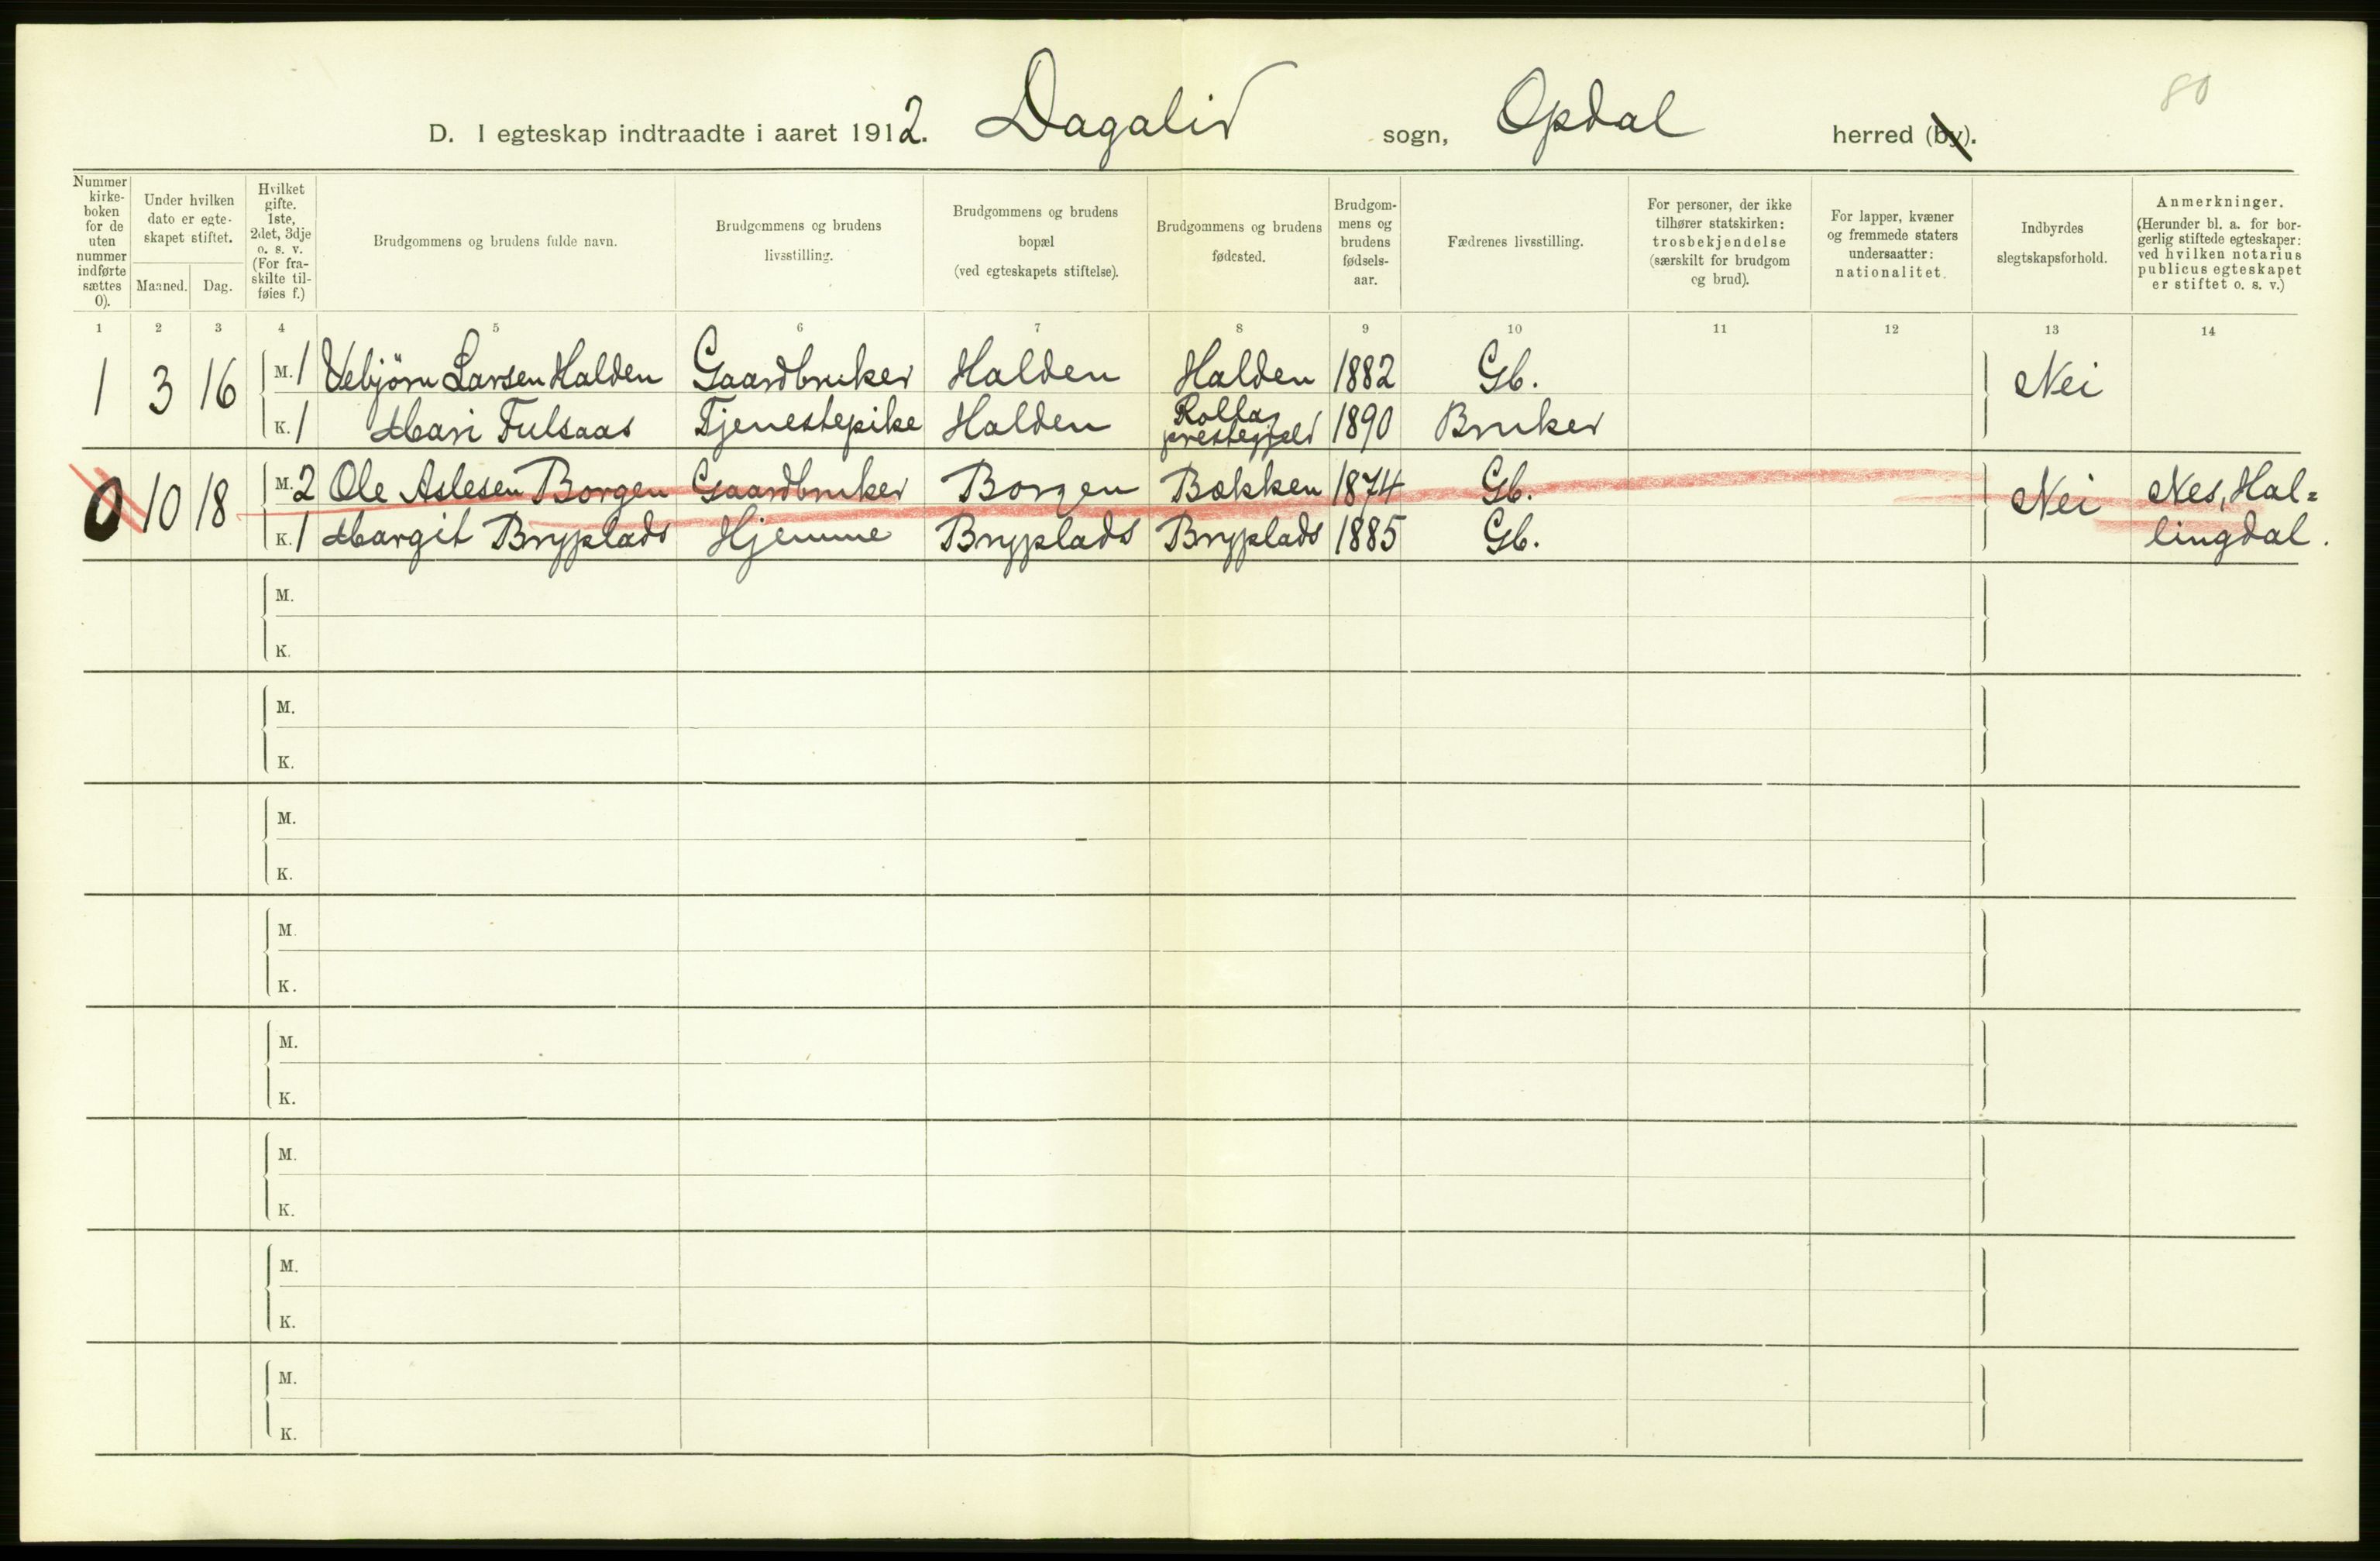 80
D. I egteskap indtraadte i aaret 1912. Dagalid sogn, Opdal herred (by).
Nummer kirke-boken for de uten nummer indførte sættes 0).
Under hvilken dato er egte-skapet stiftet.
Maaned. Dag.
Hvilket gifte. 1ste, 2det, 3dje o. s. v. (For fra-skilte til-føies f.)
Brudgommens og brudens fulde navn.
Brudgommens og brudens livsstilling.
Brudgommens og brudens bopæl (ved egteskapets stiftelse).
Brudgommens og brudens fødested.
Brudgom-mens og brudens fødsels-aar.
Fædrenes livsstilling.
For personer, der ikke tilhører statskirken: trosbekjendelse (særskilt for brudgom og brud).
For lapper, kvæner og fremmede staters undersaatter: nationalitet.
Indbyrdes slegtskapsforhold.
Anmerkninger. (Herunder bl. a. for bor-gerlig stiftede egteskaper: ved hvilken notarius publicus egteskapet er stiftet o. s. v.)
1 2 3 4 5 6 7 8 9 10 11 12 13 14
1 3 16 M. 1 Vebjörn Larsen Halden Gaardbruker Halden Halden 1882 Gb. Nei
K. 1 Mari Fulsaas Tjenestepike Halden Rollag prestegjeld 1890 Bruker
0 10 18 M. 2 Ole Aslesen Borgen Gaardbruker Borgen Bakken 1874 Gb. Nei Nes, Hal=
K. 1 Margit Bryplads Hjemme Bryplads Bryplads 1885 Gb. lingdal.
M.
K.
M.
K.
M.
K.
M.
K.
M.
K.
M.
K.
M.
K.
M.
K.